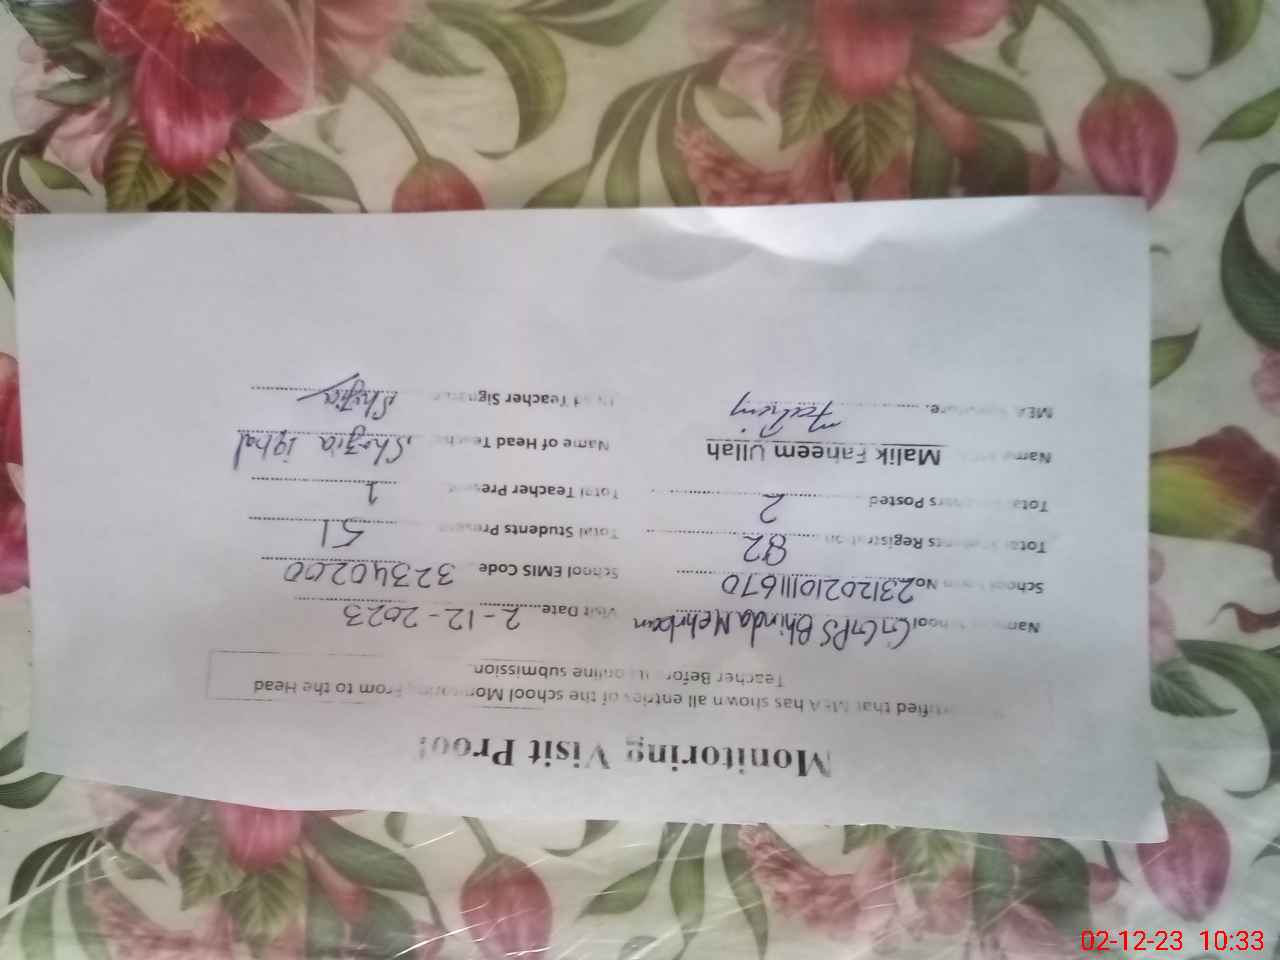 Monitoring Visit Proof
Certified that MEA has shown all entries of the school Monitoring From to the Head
Teacher Before its online submission.
Name of School GGPS Bhinda Mehrban Visit Date 2-12-2023
School Form No 23120210111670 School EMIS Code 32340200
Total Students Registration 82 Total Students Present 51
Total Teachers Posted 2 Total Teacher Present 1
Name Malik Faheem Ullah Name of Head Teacher Shazia iqbal
MEA Signature. Faheem Head Teacher Signature Shazia
02-12-23 10:33